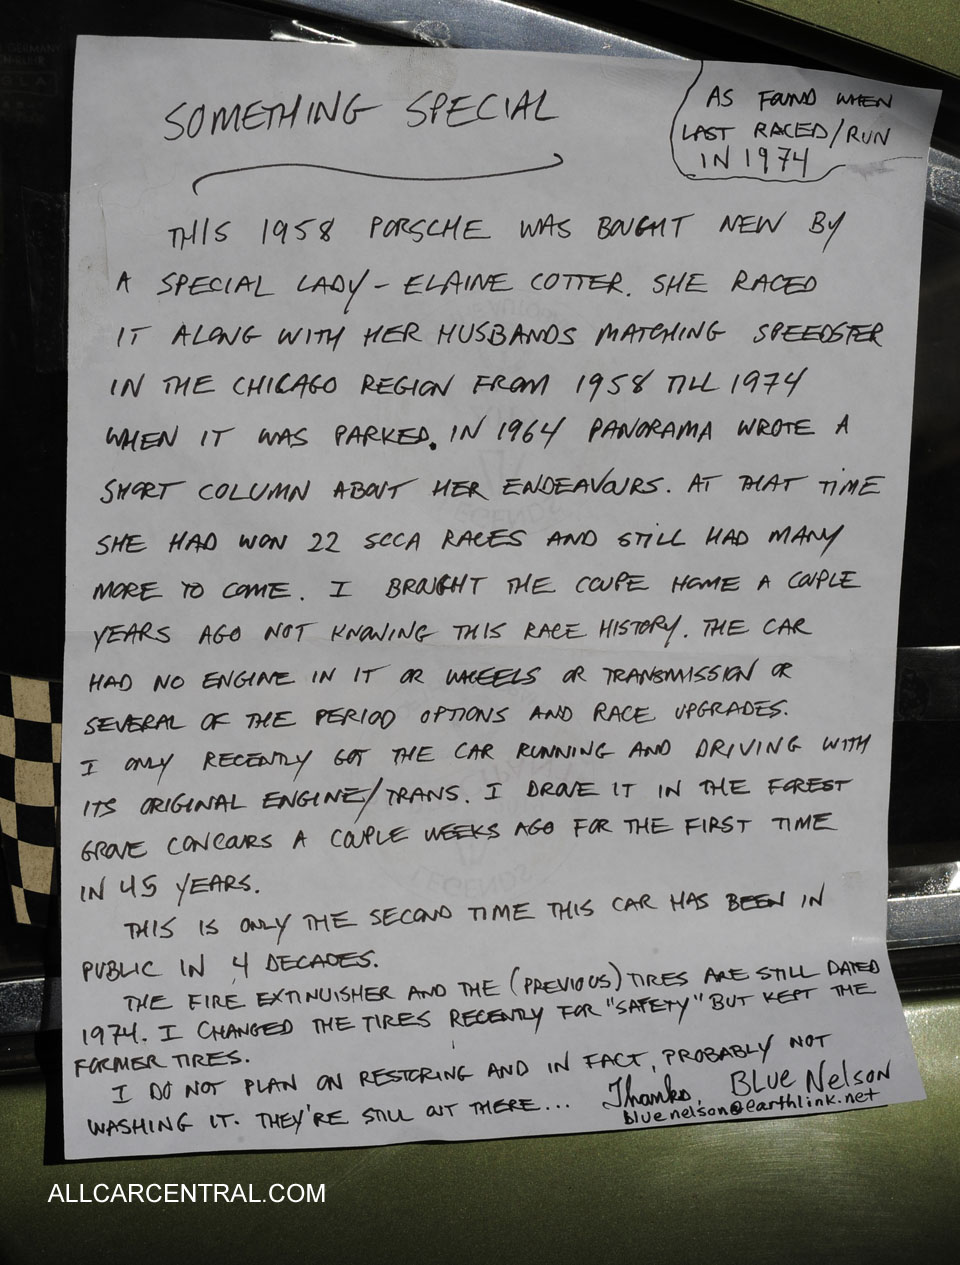 SOMETHING SPECIAL
AS FOUND WHEN
LAST RACED/RUN
IN 1974
THIS 1958 PORSCHE WAS BOUGHT NEW BY
A SPECIAL LADY - ELAINE COTTER. SHE RACED
IT ALONG WITH HER HUSBANDS MATCHING SPEEDSTER
IN THE CHICAGO REGION FROM 1958 TILL 1974
WHEN IT WAS PARKED. IN 1964 PANORAMA WROTE A
SHORT COLUMN ABOUT HER ENDEAVOURS. AT THAT TIME
SHE HAD WON 22 SCCA RACES AND STILL HAD MANY
MORE TO COME. I BROUGHT THE COUPE HOME A COUPLE
YEARS AGO NOT KNOWING THIS RACE HISTORY. THE CAR
HAD NO ENGINE IN IT OR WHEELS OR TRANSMISSION OR
SEVERAL OF THE PERIOD OPTIONS AND RACE UPGRADES.
I ONLY RECENTLY GOT THE CAR RUNNING AND DRIVING WITH
ITS ORIGINAL ENGINE/TRANS. I DROVE IT IN THE FOREST
GROVE CONCOURS A COUPLE WEEKS AGO FOR THE FIRST TIME
IN 45 YEARS.
THIS IS ONLY THE SECOND TIME THIS CAR HAS BEEN IN
PUBLIC IN 4 DECADES.
THE FIRE EXTINUISHER AND THE (PREVIOUS) TIRES ARE STILL DATED
1974. I CHANGED THE TIRES RECENTLY FOR "SAFETY" BUT KEPT THE
FORMER TIRES.
I DO NOT PLAN ON RESTORING AND IN FACT, PROBABLY NOT
WASHING IT. THEY'RE STILL OUT THERE... Thanks, BLUE NELSON
bluenelson@earthlink.net
ALLCARCENTRAL.COM